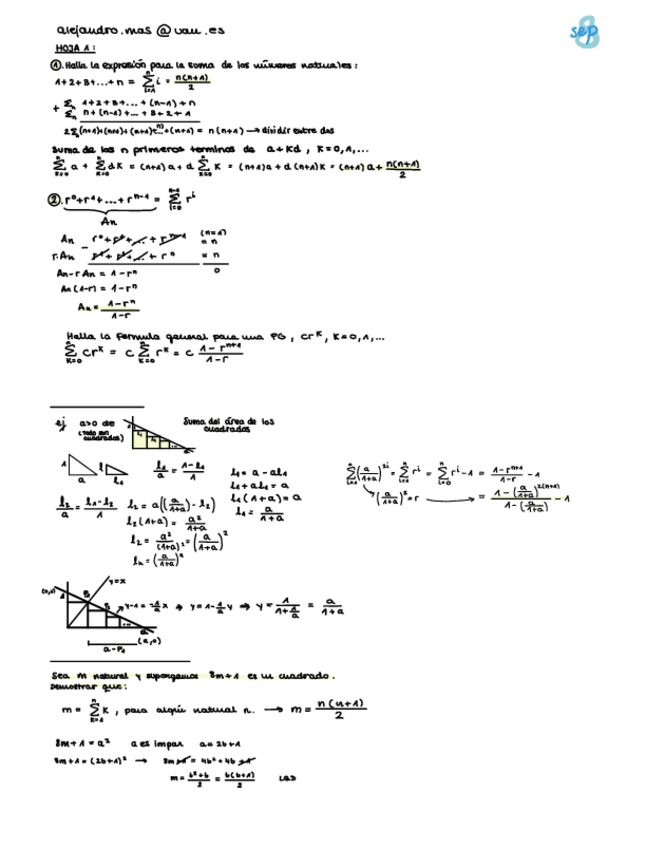 alejandro.mas @ uau.es
8 sep
HOJA 1:
①. Halla la expresión para la suma de los números naturales:
1+2+3+...+n = Σ_{i=1}^{n} i = n(n+1)/2
+ Σn 1+2+3+...+(n-1)+n
Σn n+(n-1)+...+3+2+1
= n(n+1) → dividir entre dos
Suma de los n primeros terminos de a+kd, k=0,1,...
Σ_{k=0}^{n} a + Σ_{k=0}^{n} dk = (n+1)a + d Σ_{k=0}^{n} k = (n+1)a + d(n+1)k = (n+1)a + n(n+1)/2
②. r⁰+r¹+...+rⁿ⁻¹ = Σ_{i=0}^{n-1} rⁱ
An
An - r⁰+r¹+...+rⁿ⁻¹ = n
r·An r¹+r²+...+rⁿ = n
0
An-rAn = 1-rⁿ
An(1-r) = 1-rⁿ
An = (1-rⁿ)/(1-r)
Halla la formula general para una PG, crᵏ, k=0,1,...
Σ_{k=0}^{n} crᵏ = c Σ_{k=0}^{n} rᵏ = c (1-rⁿ⁺¹)/(1-r)
ej a>0 de (todo son cuadrados) Suma del área de los cuadrados
1 a l l₁
l₁/a = (1-l₁)/1
l₁ = a - al₁
l₁+al₁ = a
l₁(1+a) = a
l₁ = a/(1+a)
l₂/a = (l₁-l₂)/1
l₂ = a((a/(1+a)) - l₂)
l₂(1+a) = a²/(1+a)
l₂ = a²/(1+a)² = (a/(1+a))²
lₙ = (a/(1+a))ⁿ
Σ_{i=1}^{n} (a/(1+a))²ⁱ = Σ_{i=1}^{n} rⁱ = Σ_{i=0}^{n} rⁱ-1 = (1-rⁿ⁺¹)/(1-r) - 1
(a/(1+a))² = r → = (1-(a/(1+a))²⁽ⁿ⁺¹⁾)/(1-(a/(1+a))) - 1
y=x
y-1 = -1/a x ⇒ y = 1-1/a y ⇒ y = 1/(1+1/a) = a/(1+a)
(a,0)
a-P₁
Sea m natural y supongamos 8m+1 es un cuadrado.
Demostrar que:
m = Σ_{k=1}^{n} k, para algún natural n. → m = n(n+1)/2
8m+1 = a² a es impar a = 2b+1
8m+1 = (2b+1)² → 8m+1 = 4b²+4b+1
m = (b²+b)/2 = b(b+1)/2